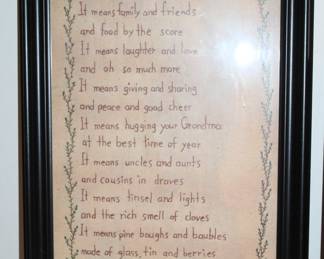 It means family and friends
and food by the score
It means laughter and love
and oh so much more
It means giving and sharing
and peace and good cheer
It means hugging your Grandma
at the best time of year
It means uncles and aunts
and cousins in draves
It means tinsel and lights
and the rich smell of cloves
It means pine boughs and baubles
made of glass, tin and berries